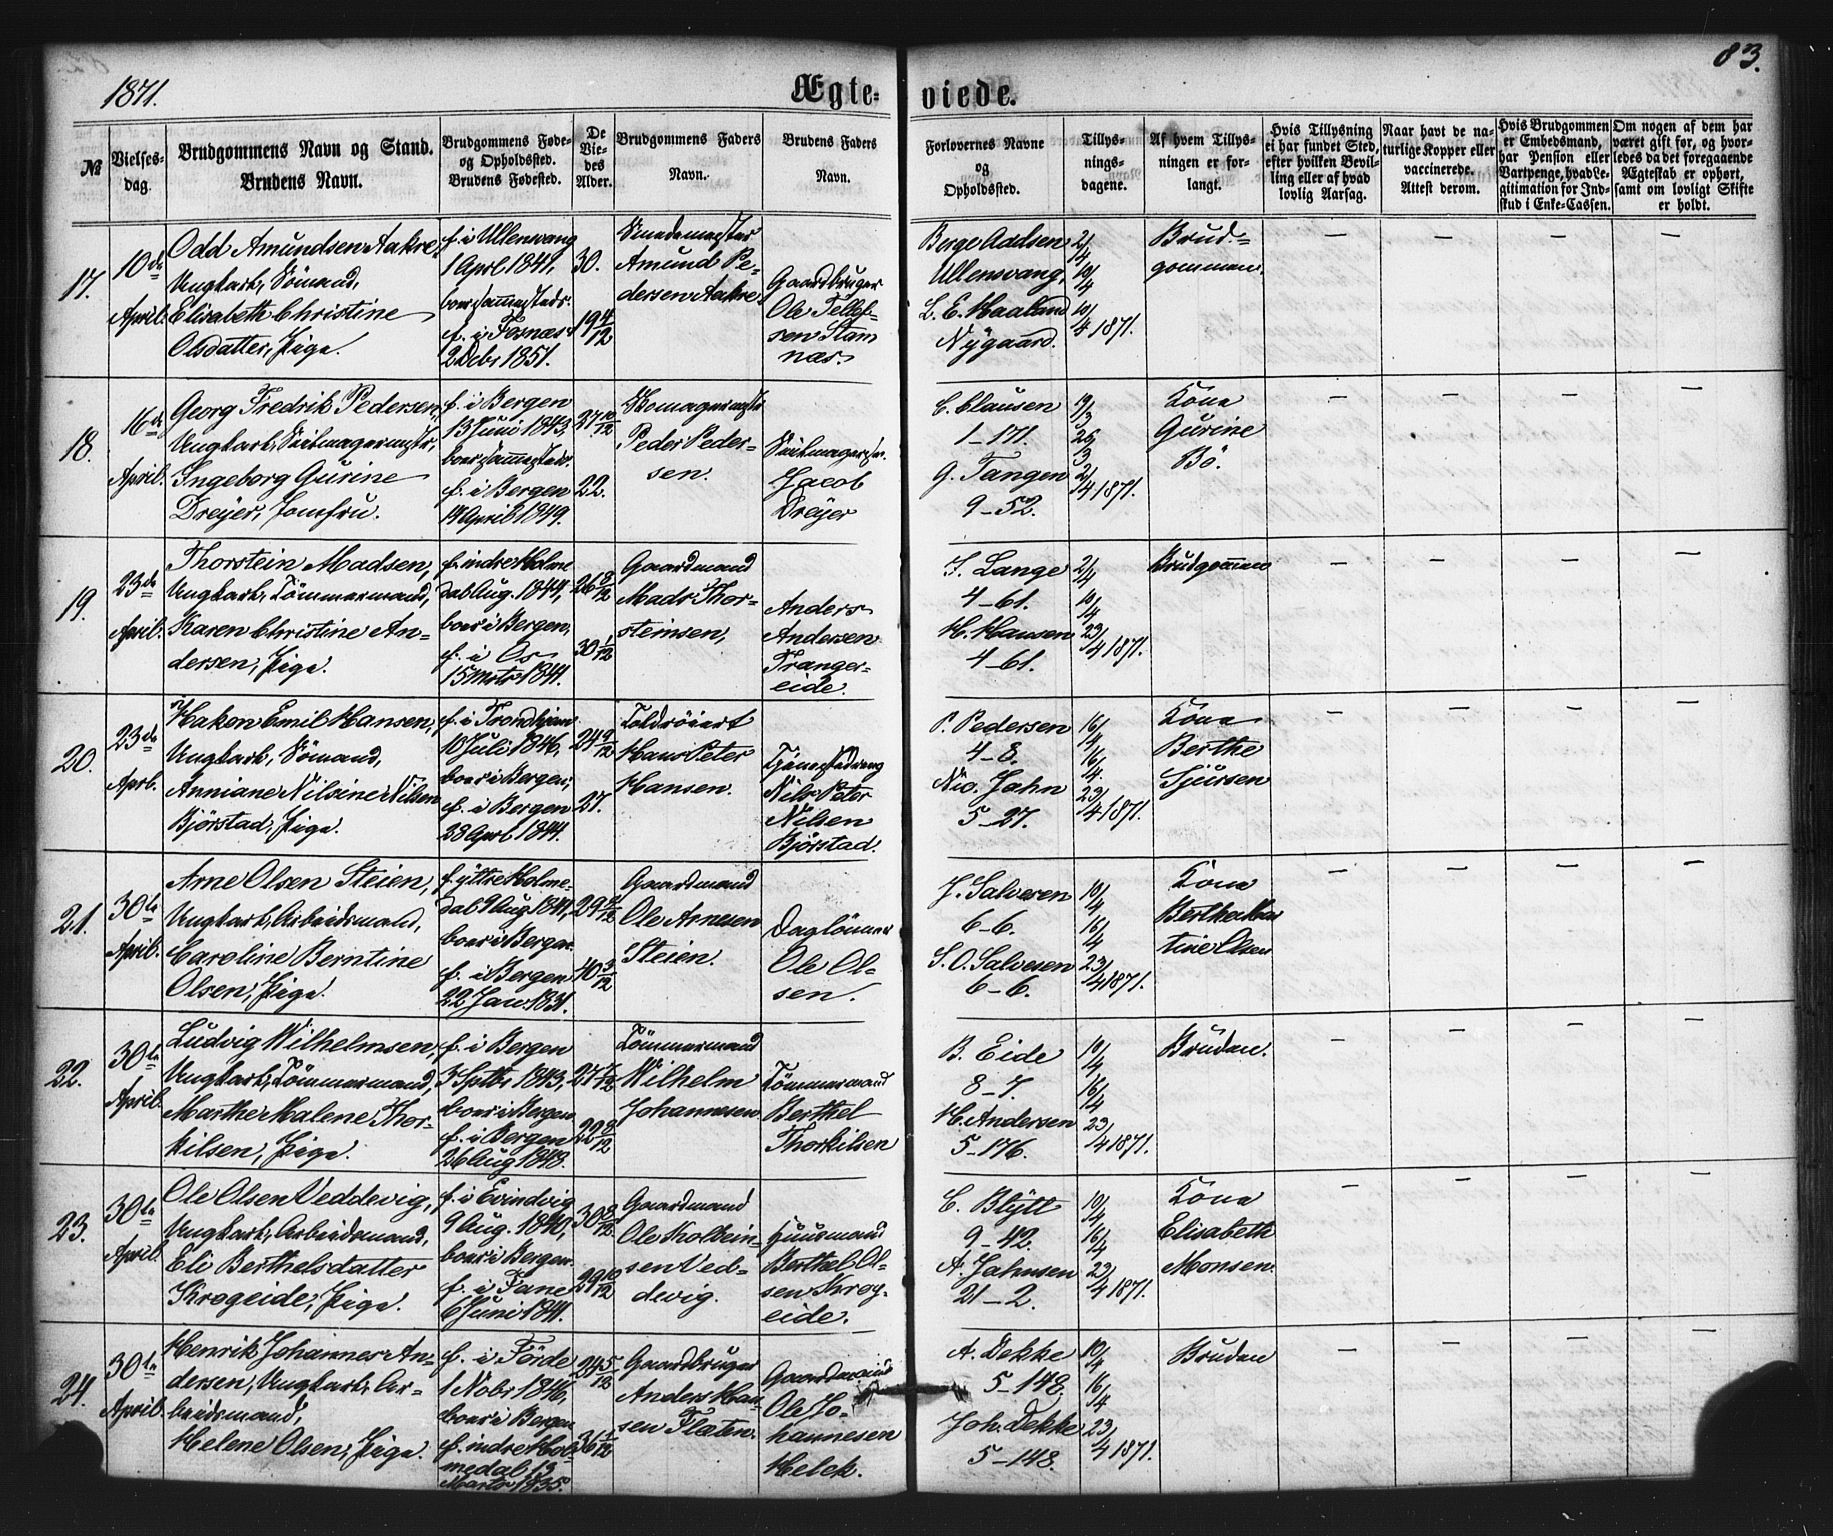 1871.
Ægte-
viede.
83.
№
Vielses-
dag.
Brudgommens Navn og Stand.
Brudens Navn.
Brudgommens Føde-
og Opholdssted.
Brudens Fødested.
De
Vie-
des
Alder.
Brudgommens Faders
Navn.
Brudens Faders
Navn.
Forlovernes Navne
og
Opholdssted.
Tillys-
nings-
dagene.
Af hvem Tillys-
ningen er for-
langt.
Hvis Tillysning
ei har fundet Sted,
efter hvilken Bevil-
ling eller af hvad
lovlig Aarsag.
Naar havt de na-
turlige Kopper eller
vaccinerede.
Attest derom.
Hvis Brudgommen
er Embedsmand,
har Pension eller
Vartpenge, hvad Le-
gitimation for Ind-
skud i Enke-Cassen.
Om nogen af dem har
været gift før, og hvor-
ledes da det foregaaende
Ægteskab er ophørt,
samt om lovligt Skifte
er holdt.
17.
10de
April.
Odd Amundsen Aakre,
Ungkarl, Sömand,
Elisabeth Christine
Olsdatter, Pige.
f. i Ullensvang
1 April 1841,
boer sammesteds.
f. i Fornæs
2 Debr 1851.
30.
19 4/12
Amund Pe-
dersen Aakre
Gaardbruger
Ole Tellef-
sen Stam
næs.
Berge Aadsen
Ullensvang,
L. E. Haaland
Nygaard.
2/4
10/4
10/4 1871.
Brud-
gommen.
18.
16de
April.
Georg Fredrik Pedersen,
Ungkarl,
Ingeborg Gurine
Dreyer, Jomfru.
f. i Bergen
13 Juni 1843,
boer sammesteds.
f. i Bergen
14 April 1849.
27 10/12
22.
Skomagermestr
Peder Peder-
sen.
Jacob
Dreyer
C. Clausen
1-171.
G. Tangen
9-52.
19/3
26/3
2/4 1871.
Kona
Gurine
Bö.
19.
23de
April.
Thorstein Madsen,
Ungkarl, Tömmermand,
Karen Christine An-
dersen, Pige.
f. indre Holme
dal Aug. 1844,
boer i Bergen,
f. i Os
15 Marts 1841.
26 8/12
30 1/12
Gaardmand
Mads Thor-
steinsen,
Anders
Andersen
Tranger-
eide.
S. Lange
4-61.
H. Hansen
4-61.
2/4
10/4
23/4 1871.
Brudgommen
20.
23de
Aprl.
Hakon Emil Hansen,
Ungkarl, Sömand,
Anniane Nilsine Nilsen
Björstad, Pige.
f. i Trondhjem
10 Juli 1846,
boer i Bergen;
f. i Bergen
23 Aprl 1844.
24 9/12
27.
Toldröiert
Hans Peter
Hansen.
Nils Peter
Nilsen
Björstad.
P. Pedersen
4-8.
Nic. Jahn
5-27.
16/4
16/4.
23/4 1871.
Kona
Berthe
Sjursen
21.
30te
April.
Arne Olsen Steien,
Ungkarl, Arbeidsmand,
Caroline Berntine
Olsen, Pige.
f. yttre Holme-
dal 9 Aug. 1841,
boer i Bergen.
f. i Bergen
22 Jan. 1831.
29 8/12
40 3/12
Gaardmand
Ole Arnesen
Steien.
Daglönner
Ole Ol-
sen.
J. Salvesen
6-6.
S. O. Salvesen
6-6.
10/4
16/4
23/4 1871.
Kona
tine Olsen
22.
30te
April.
Ludvig Wilhelmsen,
Ungkarl, Tömmermand,
Marthe Malene Thor-
kilsen, Pige.
f. i Bergen
5 Sptbr 1843,
boer i Bergen
f. i Bergen
26 Aug 1848.
27 7/12
22 8/12
Tömmermand
Wilhelm
Johannesen
Tömmermand
Berthel
Thorkilsen
B. Eide
8-7.
H. Andersen
5-176.
10/4
16/4
23/4 1871.
Bruden.
23.
30te
April.
Ole Olsen Veddevig,
Ungkarl, Arbeidsmand,
Eli Berthelsdatter
Krogeide, Pige.
f. i Evindvig
9 Aug. 1840,
boer i Bergen.
f. i Fane
6 Juni 1841.
30 8/12
29 10/12
Gaardmand
Ole Kolbein-
sen Ved-
devig.
Huusmand
Berthel Ol-
sen Krog-
eide.
C. Blÿtt
9-42.
A. Jahnsen
21-2.
10/4
16/4
23/4 1871.
Kona
Elisabeth
Monsen.
24.
30te
April.
Henrik Johannes An-
dersen, Ungkarl, Ar-
beidsmand,
Helene Olsen, Pige.
f. i Förde
1 Nobr 1846,
boer i Bergen
f. indre Hol-
medal 13
Marts 1835.
24 5/12
36 1/12
Gaardbruger
Anders Han-
sen Flaten.
Gaardmand
Ole Jo-
hannesen
Helek.
A. Dekke
5-148.
Joh. Dekke
5-148.
10/4
16/4
23/4 1871.
Bruden